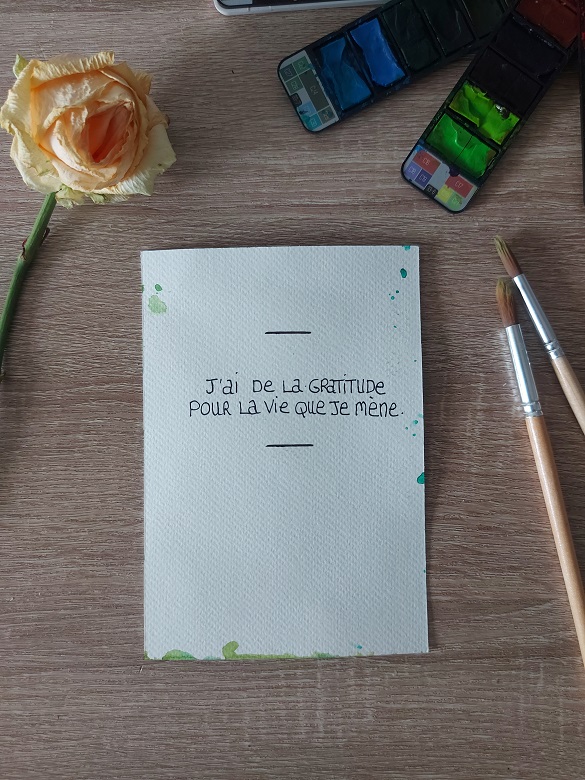 J'ai DE LA GRATITUDE
POUR LA Vie QUE Je mène.